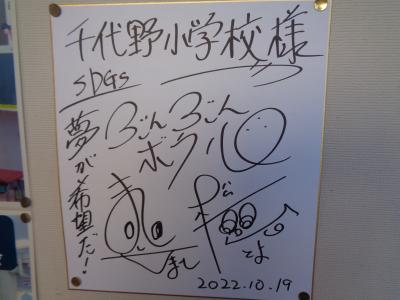 千代野小学校様
SDGs
ぶんぶん
ボウル
夢が希望だ!
まし
とよ
2022.10.19